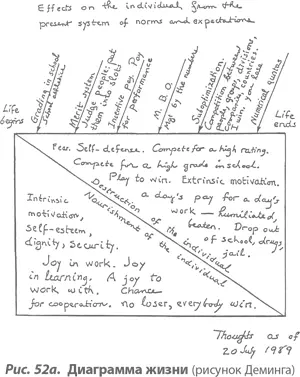 Effects on the individual from the
present system of norms and expectations
Life
begins
Grading in school
Merit system
Judge people: put
them into slots
Incentive pay. Pay
for performance
M. B. O.
Mgt by the numbers
Suboptimization.
Competition between
people, groups, divisions,
companies, countries.
I win, you lose
Numerical quotas
Life
ends
Fear. Self-defense. Compete for a high rating.
Compete for a high grade in school.
Play to win. Extrinsic motivation.
a day's pay for a day's
work — humiliated,
beaten. Drop out
of school, drugs,
jail.
Destruction of the individual
Nourishment of the individual
Intrinsic
motivation,
self-esteem,
dignity, security.
Joy in work. Joy
in learning. A joy to
work with. Chance
for cooperation. no loser, everybody win.
Thoughts as of
20 July 1989
Рис. 52а. Диаграмма жизни (рисунок Деминга)